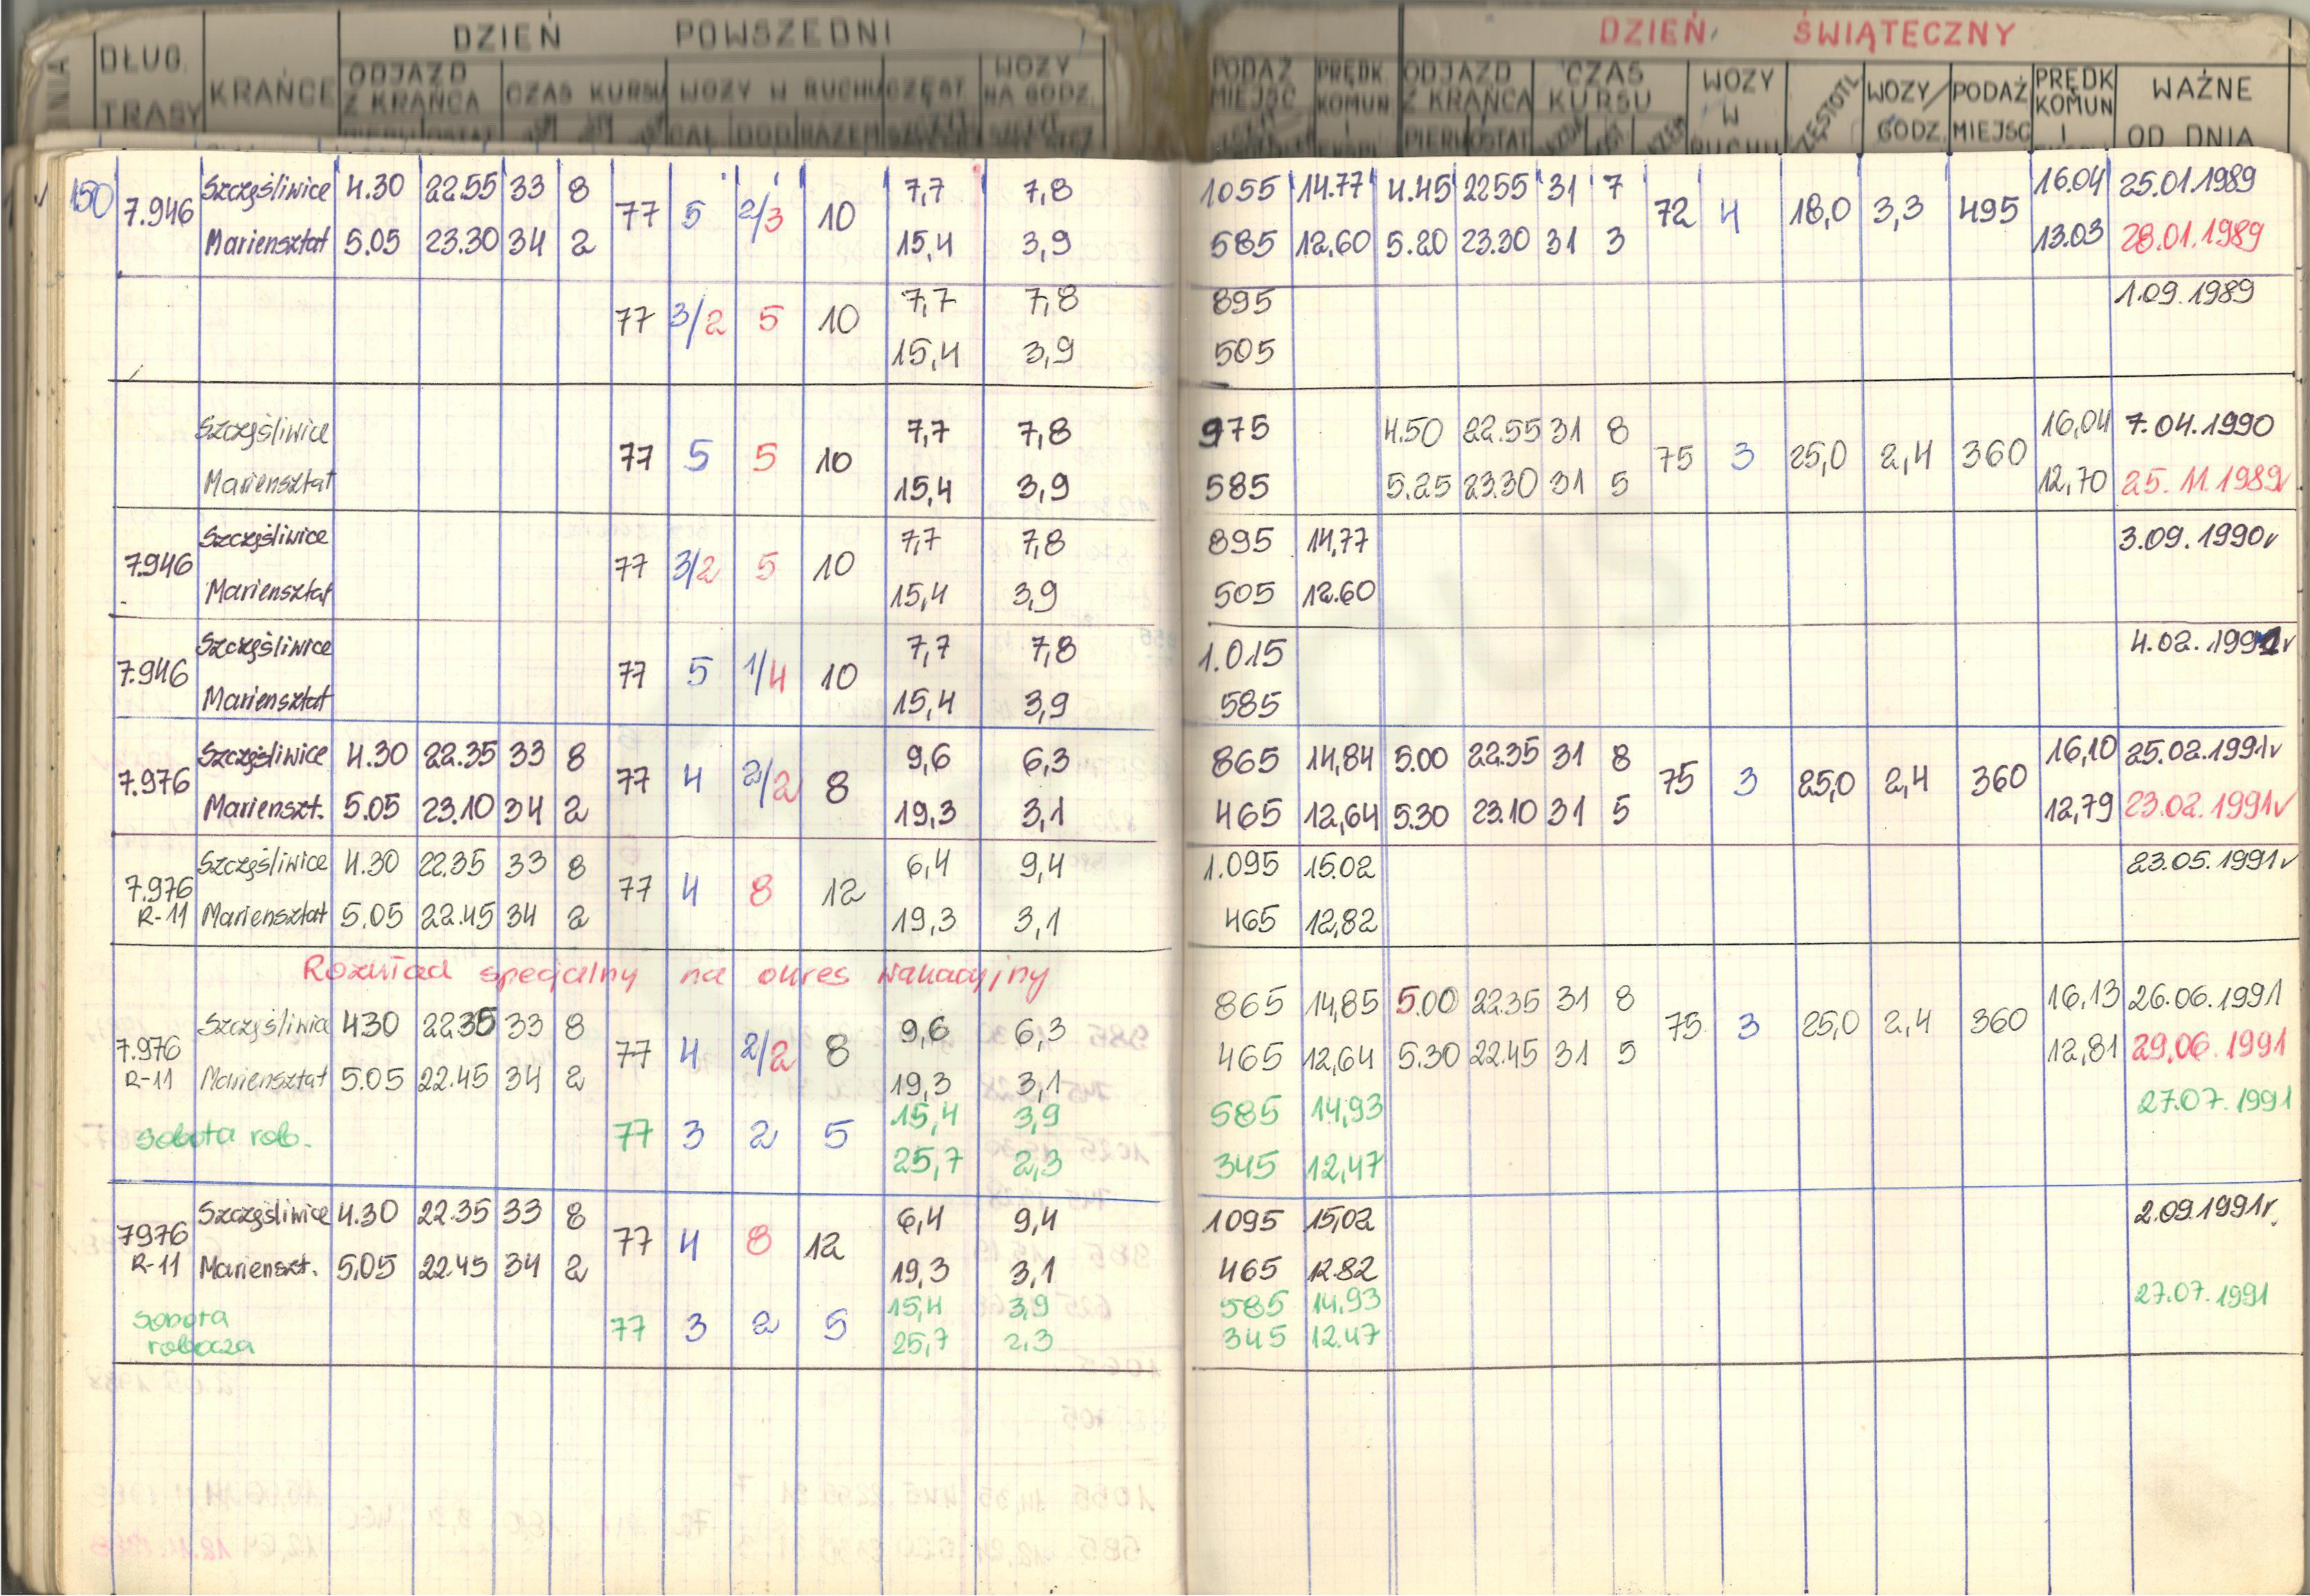 DZIEŃ POWSZEDNI DZIEŃ ŚWIĄTECZNY
DŁUG. TRASY KRAŃCE ODJAZD Z KRAŃCA CZAS KURSU WOZY W RUCHU CZĘST. WOZY NA GODZ. PODAŻ MIEJSC PRĘDK KOMUN I ODJAZD Z KRAŃCA CZAS KURSU WOZY W RUCHU CZĘSTOTL WOZY/GODZ. PODAŻ MIEJSC PRĘDK KOMUN I WAŻNE OD DNIA
PIERW OSTAT CAŁ DOD RAZEM PIERW OSTAT
150 7.946 Szczęśliwice 4.30 22.55 33 8 77 5 2/3 10 7,7 7,8 1055 14.77 4.45 2255 31 7 72 4 18,0 3,3 495 16.04 25.01.1989
Mariensztat 5.05 23.30 34 2 15,4 3,9 585 12,60 5.20 23.30 31 3 13.03 28.01.1989
77 3/2 5 10 7,7 7,8 895 1.09.1989
15,4 3,9 505
Szczęśliwice 77 5 5 10 7,7 7,8 975 4.50 22.55 31 8 75 3 25,0 2,4 360 16,04 7.04.1990
Mariensztat 15,4 3,9 585 5.25 23.30 31 5 12,70 25.11.1989r
7.946 Szczęśliwice 77 3/2 5 10 7,7 7,8 895 14,77 3.09.1990r
Mariensztat 15,4 3,9 505 12.60
7.946 Szczęśliwice 77 5 1/4 10 7,7 7,8 1.015 4.02.1991r
Mariensztat 15,4 3,9 585
7.976 Szczęśliwice 4.30 22.35 33 8 77 4 2/2 8 9,6 6,3 865 14,84 5.00 22.35 31 8 75 3 25,0 2,4 360 16,10 25.02.1991r
Marienszt. 5.05 23.10 34 2 19,3 3,1 465 12,64 5.30 23.10 31 5 12,79 23.02.1991r
7.976 Szczęśliwice 4.30 22.35 33 8 77 4 8 12 6,4 9,4 1.095 15.02 23.05.1991r
R-11 Mariensztat 5.05 22.45 34 2 19,3 3,1 465 12,82
Rozkład specjalny na okres wakacyjny
7.976 Szczęśliwice 430 2235 33 8 77 4 2/2 8 9,6 6,3 865 14,85 5.00 22.35 31 8 75 3 25,0 2,4 360 16,13 26.06.1991
R-11 Mariensztat 5.05 22.45 34 2 19,3 3,1 465 12,64 5.30 22.45 31 5 12,81 29.06.1991
sobota rob. 77 3 2 5 15,4 3,9 585 14,93 27.07.1991
25,7 2,3 345 12,47
7976 Szczęśliwice 4.30 22.35 33 8 77 4 8 12 6,4 9,4 1095 15,02 2.09.1991r.
R-11 Marienszt. 5,05 22.45 34 2 19,3 3,1 465 12.82
sobota robocza 77 3 2 5 15,4 3,9 585 14.93 27.07.1991
25,7 2,3 345 12.47